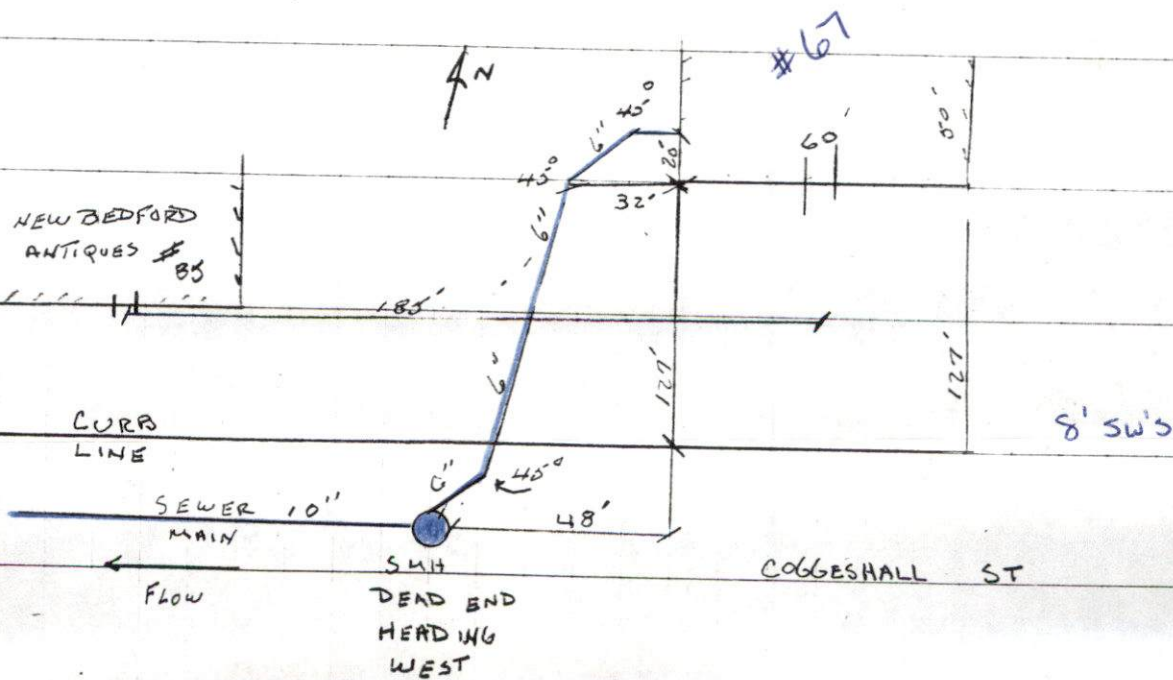 #67
N
45°
6"
45°
20'
60'
50'
45°
32'
NEW BEDFORD
ANTIQUES #
85
6"
185'
6"
127'
127'
CURB
LINE
8' SW'S
6"
45°
SEWER 10"
MAIN
48'
FLOW
SMH
DEAD END
HEADING
WEST
COGGESHALL ST